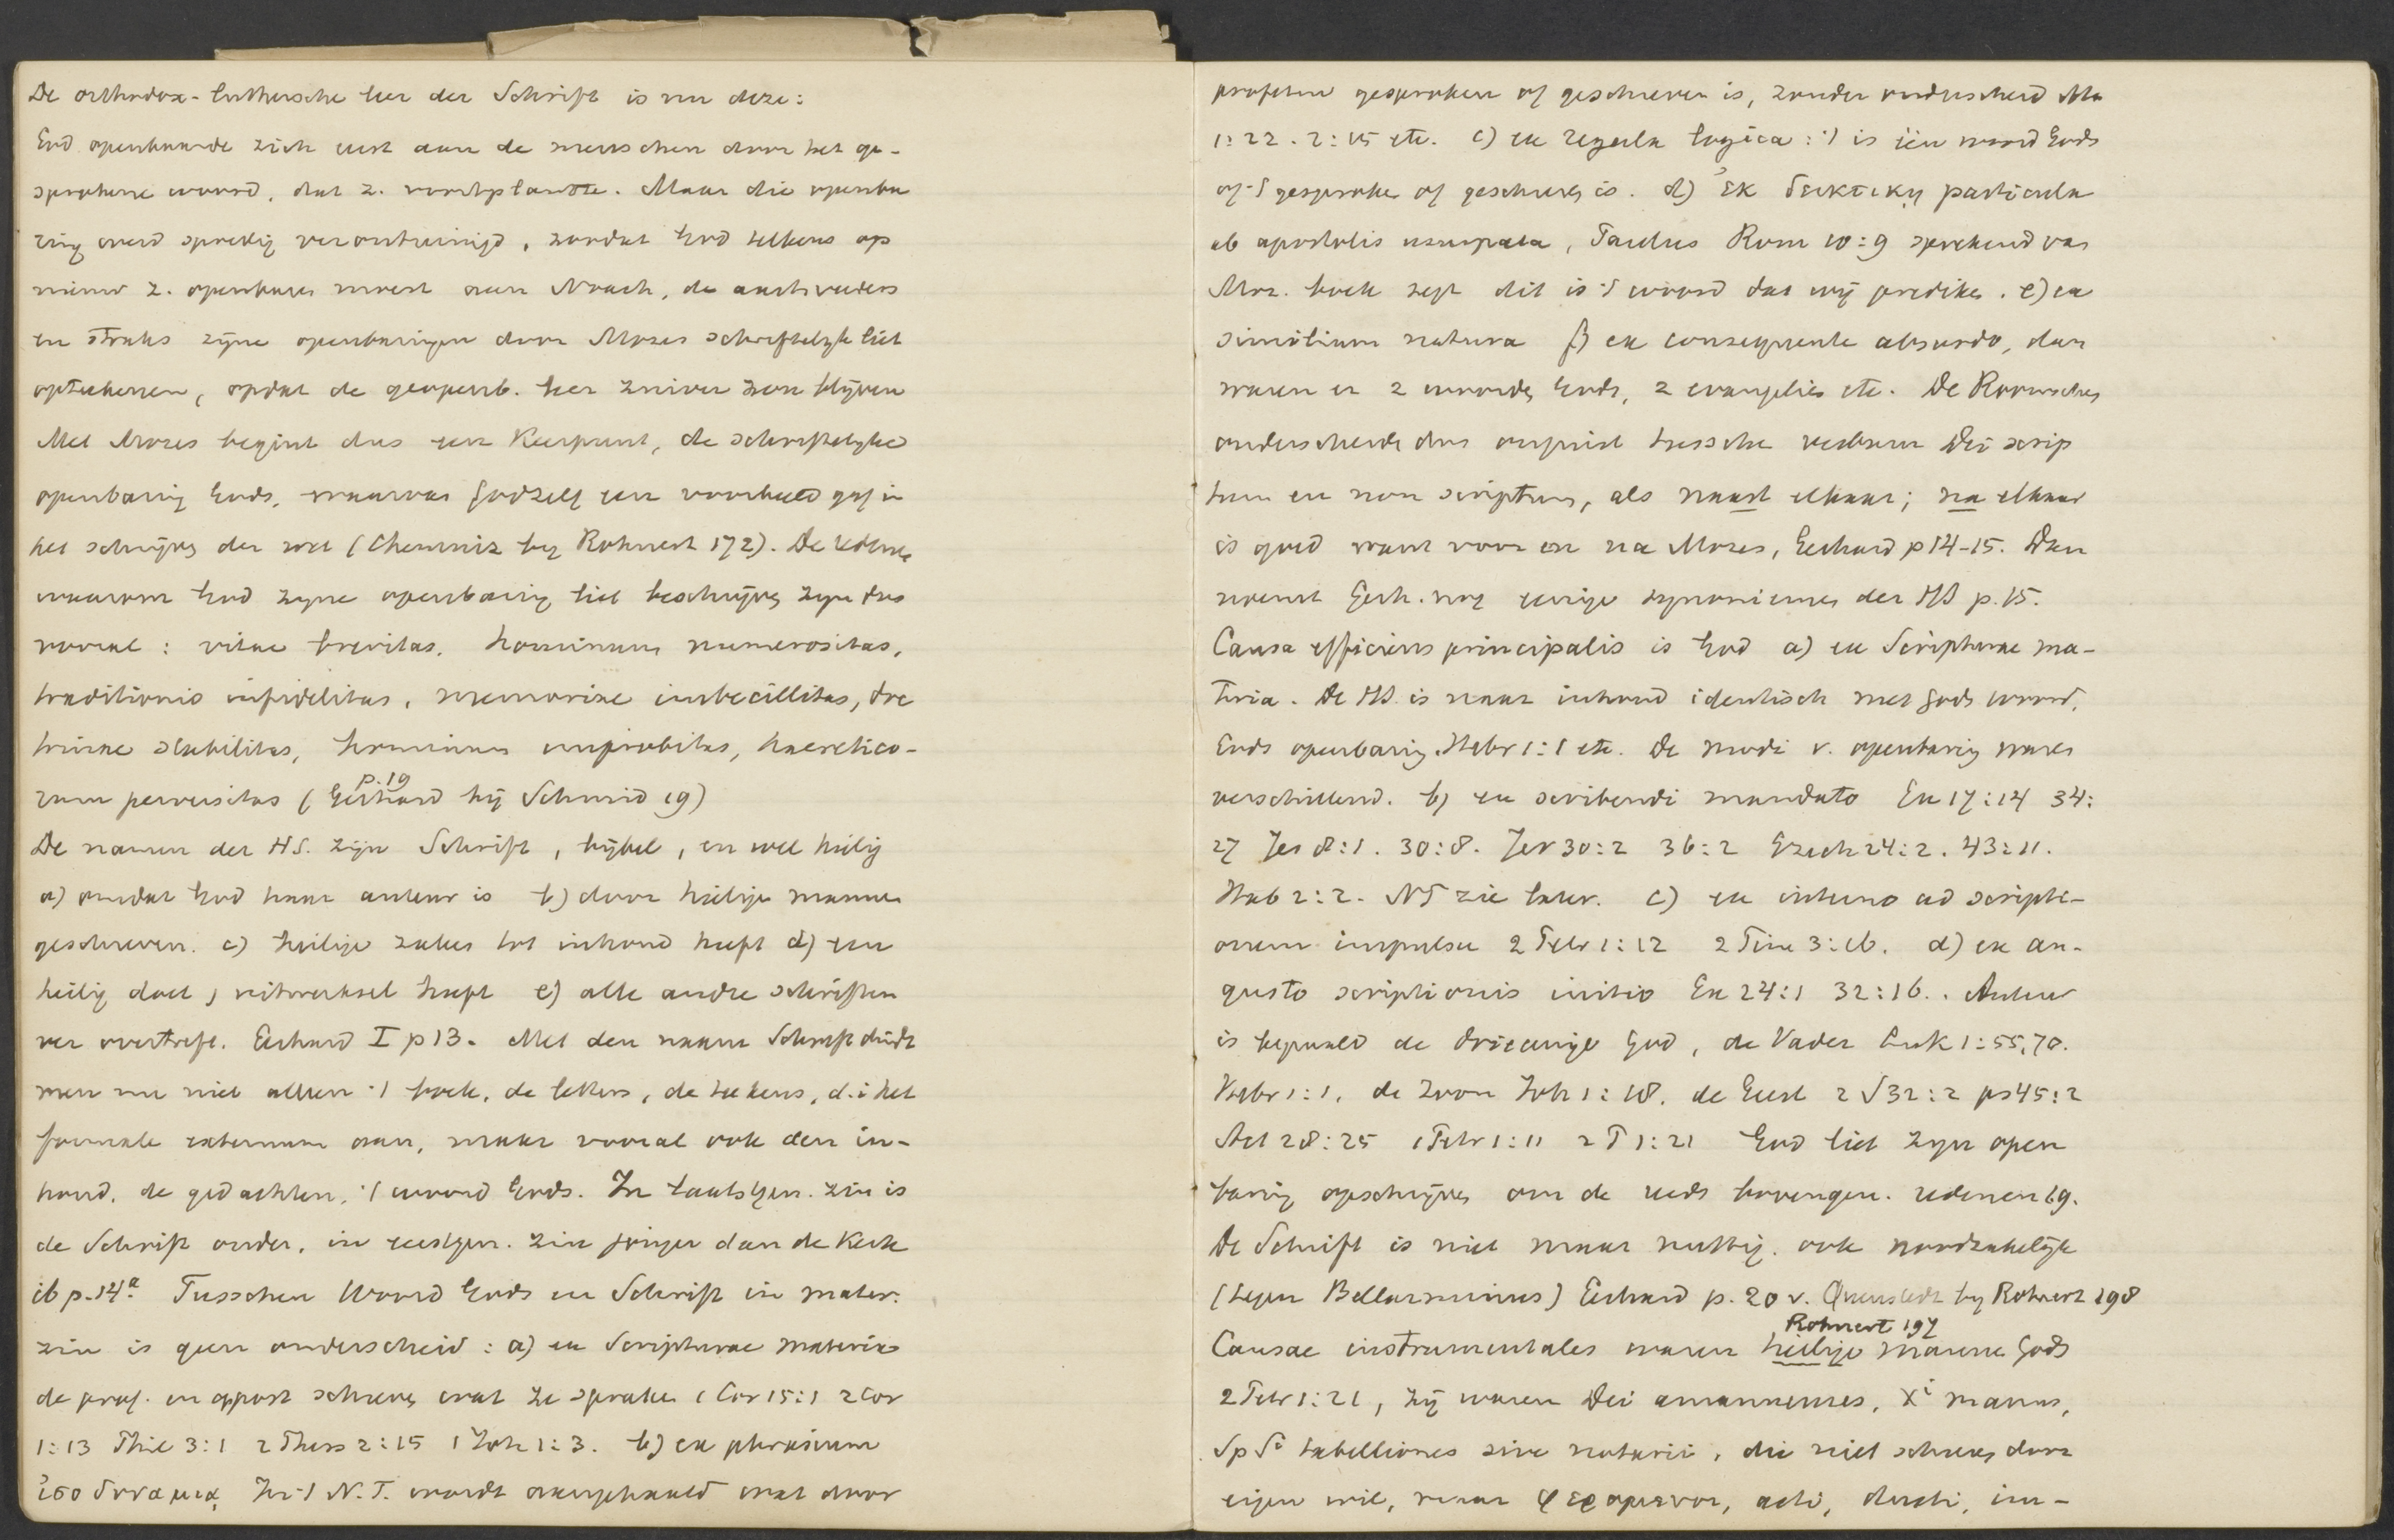 De orthodox-luthersche leer der Schrift is nu deze:
God openbaarde zich eerst aan de menschen door het ge-
sproken woord, dat z. voortplantte. Maar die openba
ring werd spoedig verontreinigd, zoodat God telkens op
nieuw z. openbaren moest aan Noach, de aartsvaders
en straks zijne openbaringen door Mozes schriftelyk liet
opteekenen, opdat de geopenb. leer zuiver zou blijven
Met Mozes begint dus een Keerpunt, de schriftelyke
openbaring Gods, waarvan God zelf een voorbeeld gaf in
het schrijven der wet (Chemniz by Rohnert 172). De redenen
waarom God zyne openbaring liet beschrijven zyn dus
vooral : vitae brevitas, hominum numerositas,
traditionis infidelitas, memoriae imbecillitas, doc
trinae stabilitas, hominum improbitas, haeretico-
p. 19
rum perversitas (Gerhard bij Schmid 19)
De namen der HS. zijn Schrift, bijbel, en wel heilig
a) omdat God haar auteur is b) door heilige mannen
geschreven. c) heilige zaken tot inhoud heeft d) een
heilig doel, uitwerksel heeft e) alle andre schriften
ver overtreft. Gerhard I p 13. Met den naam Schrift duidt
men nu niet alleen 't boek, de letters, de teekens, d.i het
formale externum aan, maar vooral ook den in-
houd, de gedachten, 't woord Gods. In laatstgen. zin is
de Schrift ouder, in eerstgen. zin jonger dan de Kerk
ib p.14ª. Tusschen Woord Gods en Schrift in mater.
zin is geen onderscheid : a) ex Scripturae materia
de prof. en apost schreven wat ze spraken 1 Cor 15:1 2 Cor
1:13 Phil 3:1 2 Thess 2:15 1 Joh 1:3. b) ex phrasium
ἰσοδυναμιᾳ In 't N.T. wordt aangehaald wat door
profeten gesproken of geschreven is, zonder onderscheid Mt
1:22. 2:15 etc. c) ex regula logica : 't is één woord Gods
of 't gesproken of geschreven is. d) ἐκ δεικτικῃ particula
ab apostolis usurpata, Paulus Rom 10:9 sprekend van
Moz. boek zegt dit is 't woord dat wij prediken. e) ex
similium natura f) ex consequente absurdo, dan
waren er 2 woorden Gods, 2 evangelies etc. De Roomschen
onderscheiden dus onjuist tusschen verbum Dei scrip
tum en non scriptum, als naast elkaar; na elkaar
is goed want voor en na Mozes, Gerhard p 14-15. Dan
noemt Gerh. nog eenige synoniemen der HS p. 15.
Causa efficiens principalis is God a) ex Scripturae ma-
teria. De HS. is naar inhoud identisch met Gods woord,
Gods openbaring. Hebr 1:1 etc. De modi v. openbaring waren
verschillend. b) ex scribendi mandato Ex 17:14 34:
27 Jes 8:1. 30:8. Jer 30:2 36:2 Ezech 24:2. 43:11.
Hab 2:2. NT zie later. c) ex interno ad scripti-
onem impulsu 2 Petr 1:12 2 Tim 3:16. d) ex au-
gusto scriptionis initio Ex 24:1 32:16.. Auteur
is bepaald de drieeenige God, de Vader Luk 1:55,70.
Hebr 1:1, de Zoon Joh 1:18. de Geest 2 S 32:2 ps 45:2
Act 28:25 1 Petr 1:11 2 P 1:21 God liet zyn open
baring opschrijven om de reeds bovengen. redenen 19.
De Schrift is niet maar nuttig, ook noodzakelijk
(tegen Bellarminus) Gerhard p. 20 v. Quenstedt by Rohnert 198
Rohnert 197
Causae instrumentales waren heilige mannen Gods
2 Petr 1:21, zij waren Dei amanuenses, Xi manus,
Sp Si tabelliones sive notarii, die niet schreven door
eigen wil, maar φερομενοι, acti, ducti, im-